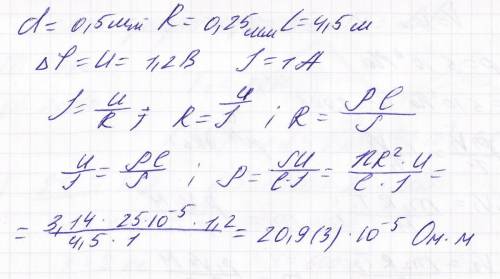 d = 0,5мм R = 0,25мм L = 4,5 м
Δφ = U = 1,2 В J = 1 A
J = U/R ; R = U/J ; R = ρℓ/S
U/J = ρℓ/S ; ρ = SU/ℓ·J = ПR²·U/ℓ·J =
= 3,14 · 25·10⁻⁵ · 1,2/4,5 · 1 = 20,9(3) · 10⁻⁵ Ом·м